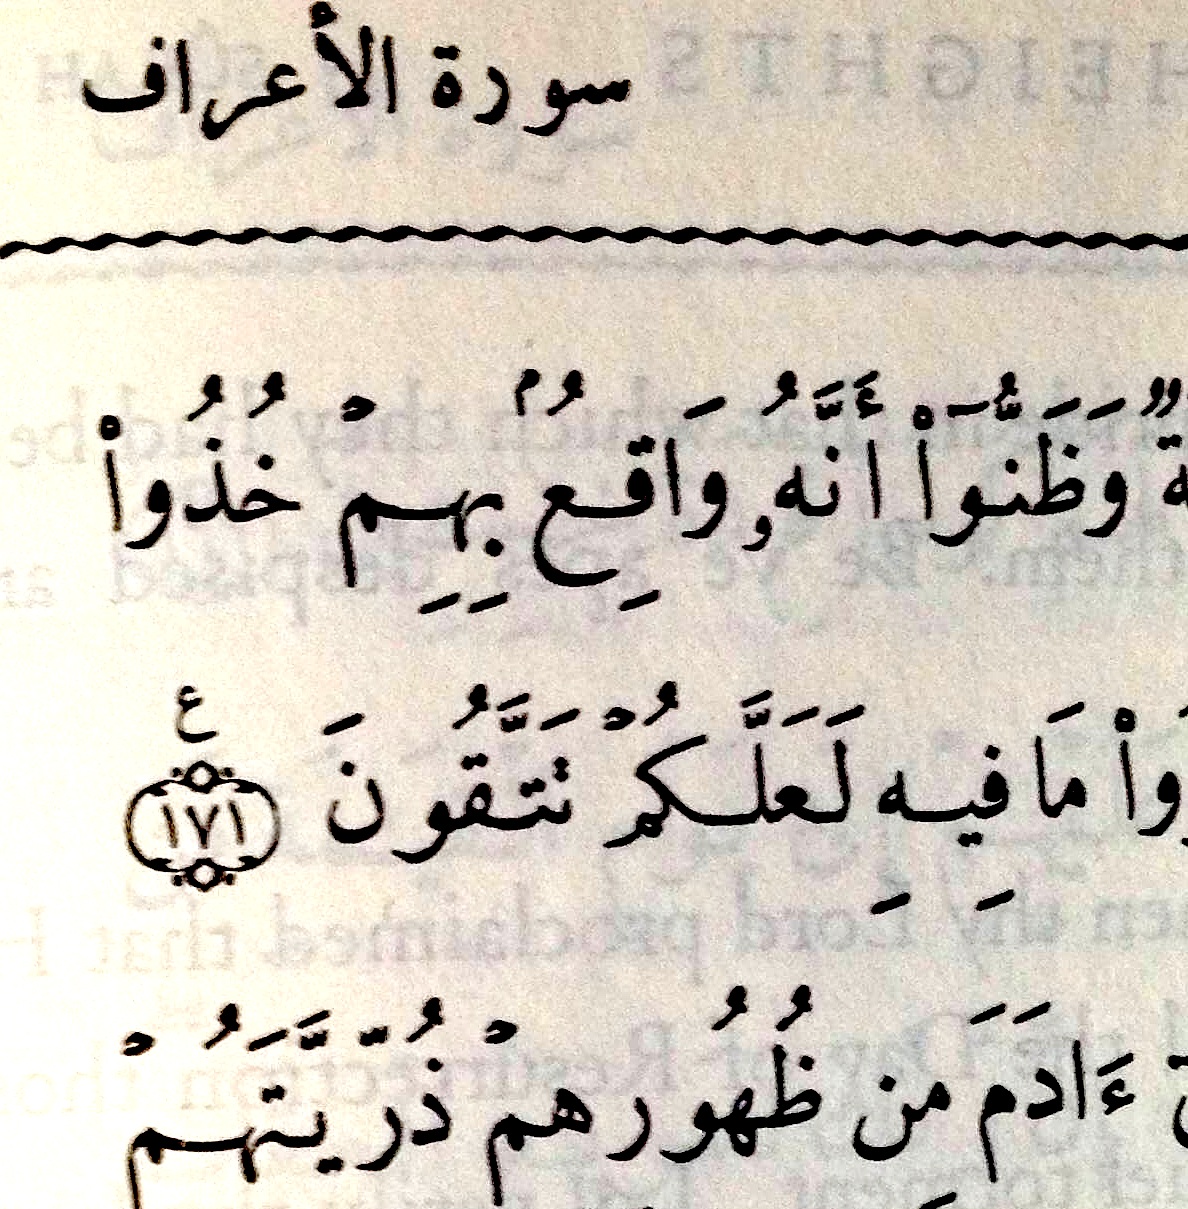 سورة الأعراف
وَظَنُّوٓا۟ أَنَّهُۥ وَاقِعٌۢ بِهِمْ خُذُوا۟
مَا فِيهِ لَعَلَّكُمْ تَتَّقُونَ ١٧١ ع
ءَادَمَ مِن ظُهُورِهِمْ ذُرِّيَّتَهُمْ